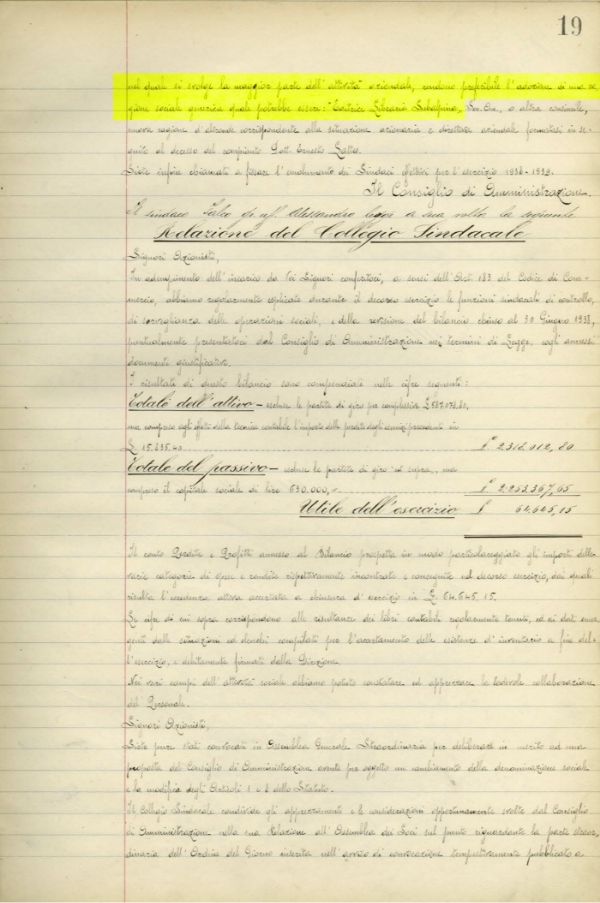 19
nel quale si svolge la maggior parte dell'attività aziendale, rendono preferibile l'adozione di una ra
gione sociale generica quale potrebbe essere: "Libraria Subalpina, Soc. An., o altra consimile,
nuova ragione d'altronde corrispondente alla situazione azionaria e direttiva aziendale formatasi in se-
guito al decesso del compianto Dott. Ernesto Lattes.
Siete infine chiamati a fissare l'emolumento dei Sindaci effettivi per l'esercizio 1938-1939.
Il Consiglio di Amministrazione
Il sindaco di Alessandro legge a sua volta la seguente
Relazione del Collegio Sindacale
Signori Azionisti,
In adempimento dell'incarico da Voi Signori conferitoci, a sensi dell'Art. 183 del Codice di Com-
mercio, abbiamo regolarmente esplicate durante il decorso esercizio le funzioni sindacali di controllo,
di sorveglianza delle operazioni sociali, e della revisione del bilancio chiuso al 30 Giugno 1938,
puntualmente presentatoci dal Consiglio di Amministrazione nei termini di Legge, cogli annessi
documenti giustificativi.
I risultati di questo bilancio sono compendiati nelle cifre seguenti:
Totale dell'attivo - escluse le partite di giro per complessive
ma compreso agli effetti della tecnica contabile l'importo delle perdite degli esercizi precedenti in
£ 15.835.40 £ 2.318.012,80
Totale del passivo - escluse le partite di giro di cui sopra, ma
compreso il capitale sociale di lire 630.000,- £ 2.253.367,65
Utile dell'esercizio £ 64.645,15
Il conto Perdite e Profitti annesso al Bilancio prospetta in modo particolareggiato gli importi delle
varie categorie di spese e rendite rispettivamente incontrate e conseguite nel decorso esercizio, dai quali
risulta l'eccedenza attiva accertata a chiusura d'esercizio in £. 64.645.15.
Le cifre di cui sopra corrispondono alle risultanze dei libri contabili regolarmente tenuti, ed ai dati emer-
genti dalle situazioni ed elenchi compilati per l'accertamento delle esistenze d'inventario a fine del-
l'esercizio, e debitamente firmati dalla Direzione.
Nei vari campi dell'attività sociale abbiamo potuto constatare ed apprezzare la lodevole collaborazione
del Personale.
Signori Azionisti,
Siete pure stati convocati in Assemblea Generale Straordinaria per deliberare in merito ad una
proposta del Consiglio di Amministrazione avente per oggetto un cambiamento della denominazione sociale
e la modifica degli Articoli 1 e 2 dello Statuto.
Il Collegio Sindacale condivide gli apprezzamenti e le considerazioni opportunamente svolte dal Consiglio
di Amministrazione nella sua Relazione all'Assemblea dei Soci sul punto riguardante la parte straor-
dinaria dell'Ordine del Giorno inserita nell'avviso di convocazione tempestivamente pubblicato a